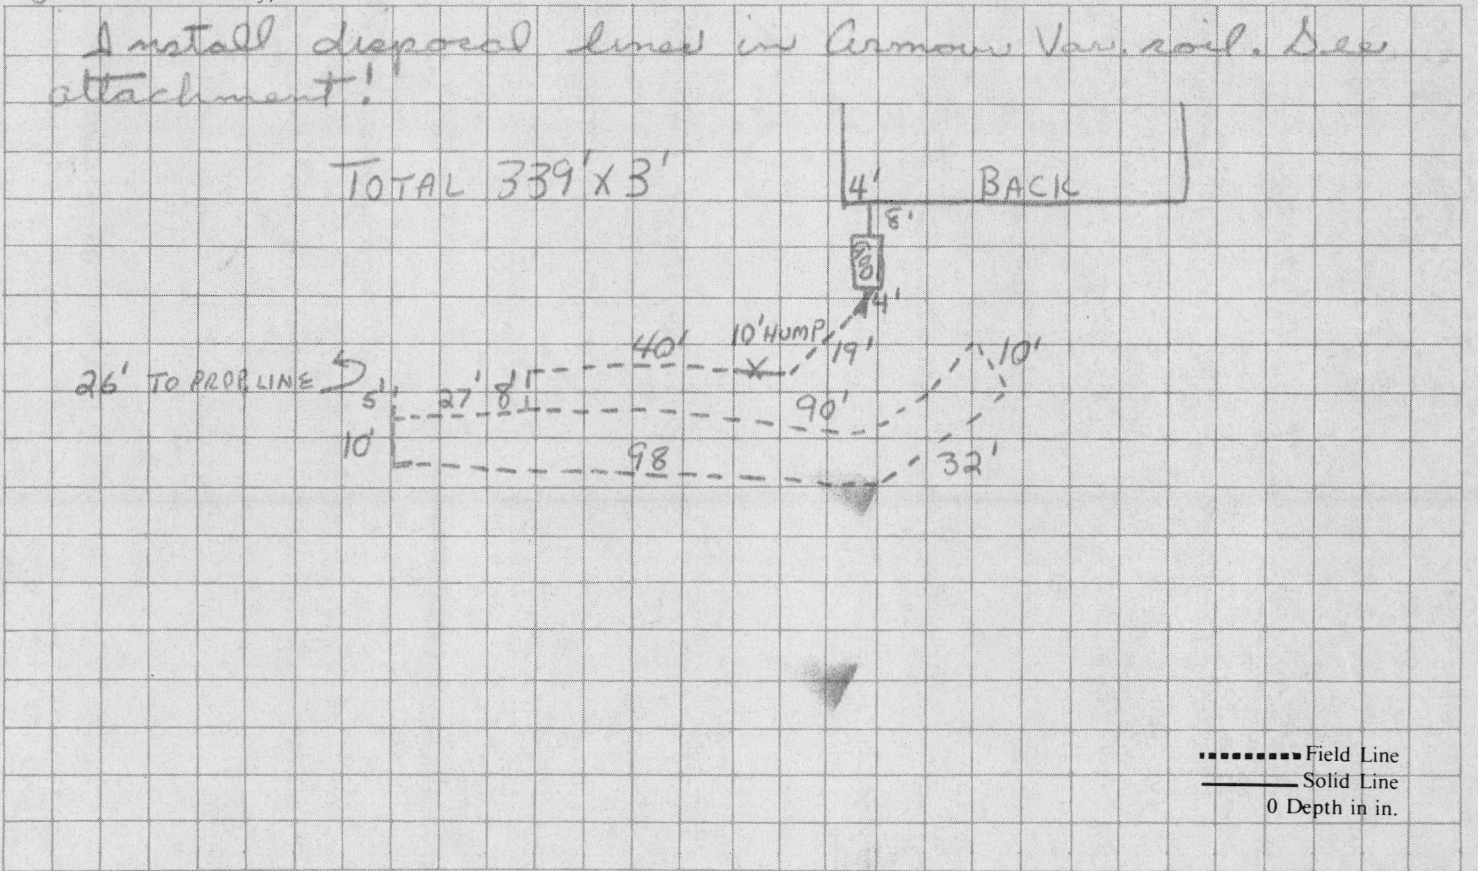 Install disposal lines in Armour Var. soil. See
attachment!
TOTAL 339' X 3'
4' BACK
8'
4'
10' HUMP
40' X 19' 10'
26' TO PROP. LINE 5' 27' 8'
90'
10' 98 32'
Field Line
Solid Line
0 Depth in in.